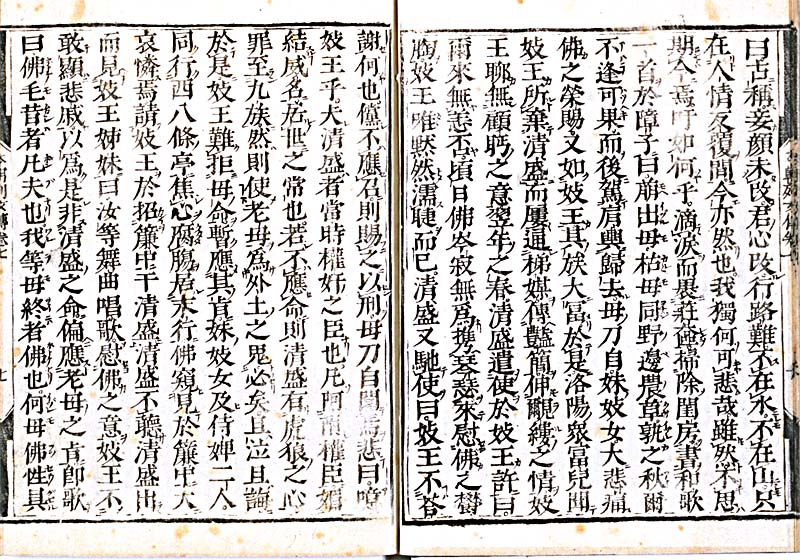 曰古稱妾顔未改君心改行路難不在水不在山只
在人情反覆間今亦然也我獨何可悲哉雖然不思
期今焉吁如何乎滴淚而畏莊奩掃除閨房書和歌
一首於障子曰萠出母枯母同野邊農草孰之秋爾
不逢可果而後駕肩輿歸去母刀自妹妓女大悲痛
佛之榮賜又如妓王其族大富於是洛陽衆富兒聞
妓王所棄清盛而屢通梯媒傳艶簡伸覼縷之情妓
王聊無顧眄之意翌年之春清盛遣使於妓王許曰
爾來無恙否頃日佛岑寂無爲攜琴瑟來慰佛之欝
胸妓王唯黙然濡睫而已清盛又馳使曰妓王不荅
謝何也儻不應召則賜之以刑母刀自聞焉悲曰噫
妓王乎夫清盛者當時權奸之臣也凡阿權臣媢
結威名於世之常也若不應命則清盛有虎狼之心
罪至九族然則使老母爲外土之鬼必矣且泣且誨
於是妓王難拒母命暫應其旨妹妓女及侍婢二人
同行西八條亭焦心腐膓居末行佛窺見於簾中大
哀憐焉請妓王於招簾中干清盛清盛不聽清盛出
而見妓王姊妹曰汝等舞曲唱歌慰佛之意妓王不
敢顯悲戚以爲是非清盛之命偏應老母之旨卽歌
曰佛毛昔者凡夫也我等母終者佛也何母佛性具